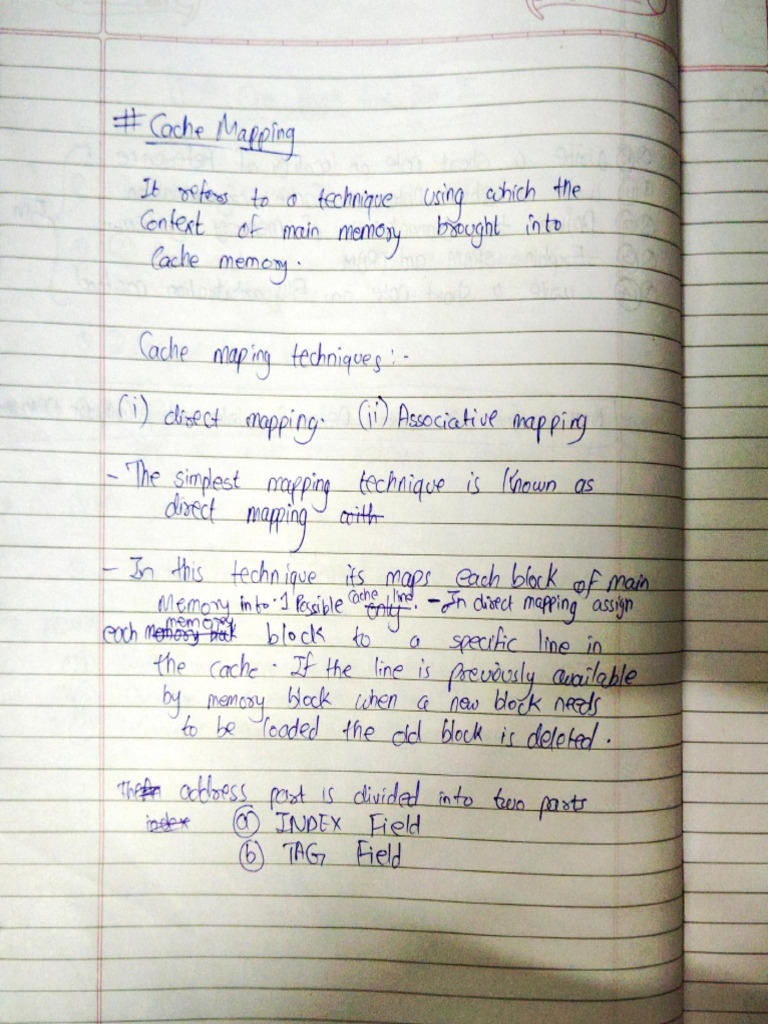 # Cache Mapping
It refers to a technique using which the
Context of main memory brought into
Cache memory.
Cache maping techniques :-
(i) direct mapping. (ii) Associative mapping
- The simplest mapping technique is known as
direct mapping with
- In this technique its maps each block of main
Memory into 1 Possible cache line only. - In direct mapping assign
each memory block memory block to a specific line in
the cache. If the line is previously available
by memory block when a new block needs
to be loaded the old block is deleted.
The address part is divided into two parts
index (a) INDEX Field
(b) TAG Field